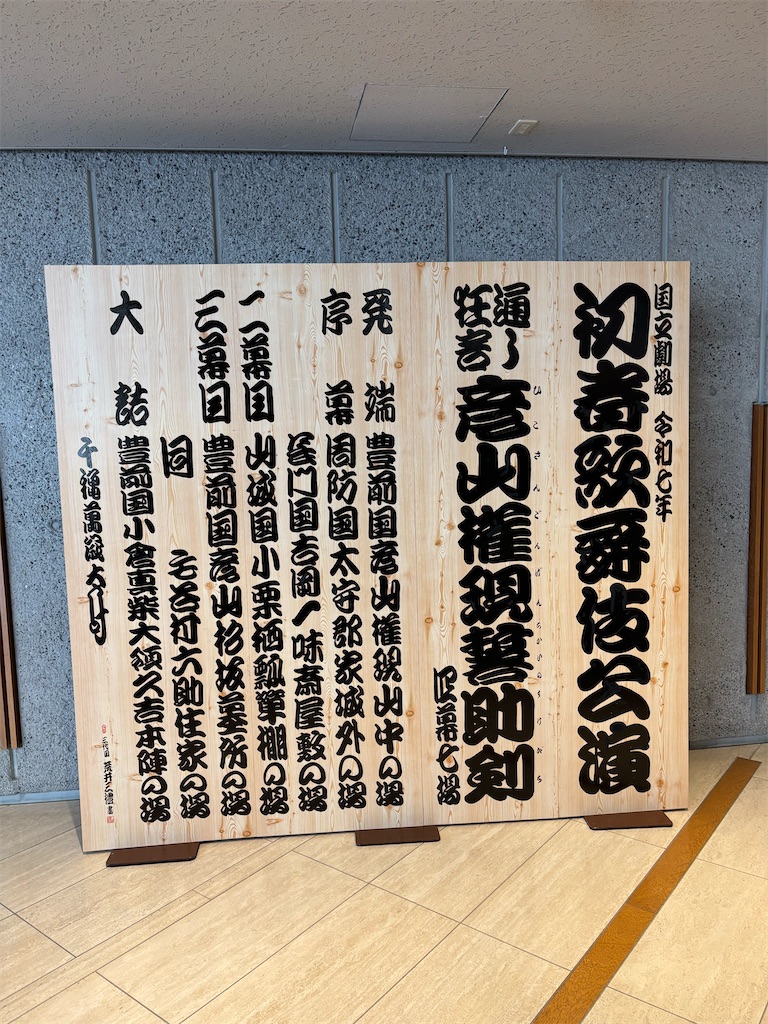 国立劇場 令和七年
初春歌舞伎公演
通し狂言
ひこさんごんげんちかいのすけだち
彦山権現誓助剣
四幕七場
発端 豊前国彦山権現山中の場
序幕 周防国太守郡家城外の場
長門国吉岡一味斎屋敷の場
二幕目 山城国小栗栖瓢箪棚の場
三幕目 豊前国彦山杉坂墓所の場
同 毛谷村六助住家の場
大詰 豊前国小倉真柴大領久吉本陣の場
千穐萬歳大入叶
三代目 荒井三禮書